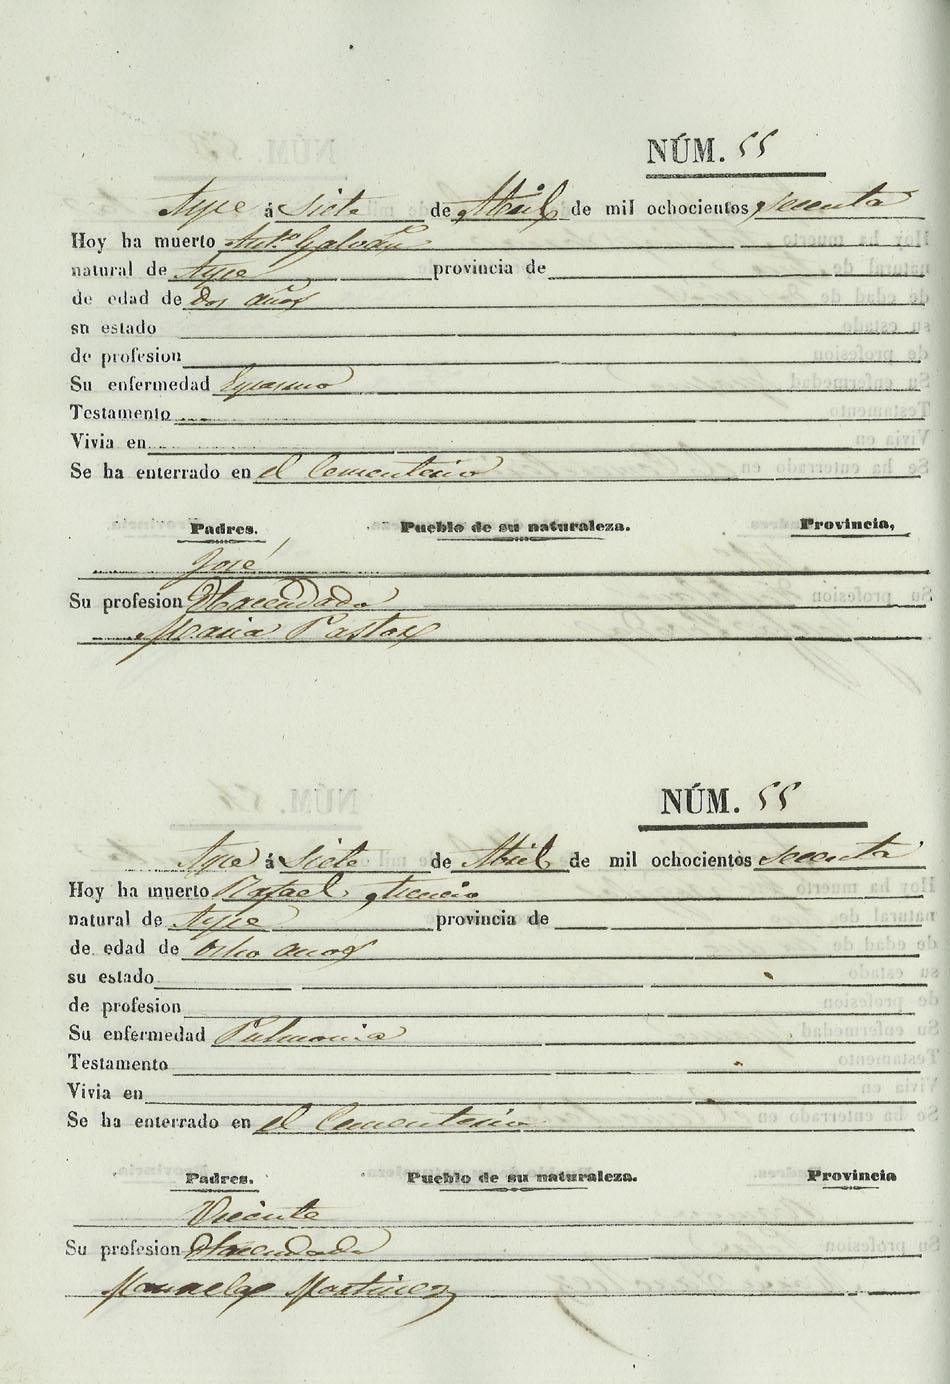 NÚM. 55
Aspe á Siete de Abril de mil ochocientos sesenta
Hoy ha muerto Antº Galvañ
natural de Aspe provincia de
de edad de Dos años
sn estado
de profesion
Su enfermedad Espasmo
Testamento
Vivia en
Se ha enterrado en el Cementerio
Padres. Pueblo de su naturaleza. Provincia,
José
Su profesion Hacendado
Maria Pastor
NÚM. 55
Aspe á Siete de Abril de mil ochocientos sesenta
Hoy ha muerto Rafael
natural de Aspe provincia de
de edad de Ocho años
su estado
de profesion
Su enfermedad Pulmonia
Testamento
Vivia en
Se ha enterrado en el Cementerio
Padres. Pueblo de su naturaleza. Provincia
Vicente
Su profesion Hacendado
Manuela Martinez